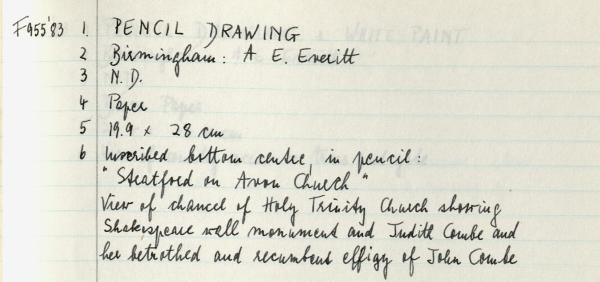 F955'83 1. PENCIL DRAWING
2 Birmingham: A E. Everitt
3 N.D.
4 Paper
5 19.9 x 28 cm
6 Inscribed bottom centre, in pencil:
"Stratford on Avon Church"
View of chancel of Holy Trinity Church showing
Shakespeare wall monument and Judith Combe and
her betrothed and recumbent effigy of John Combe